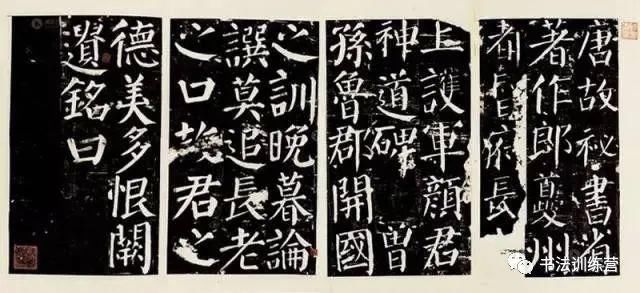 唐故祕書省
著作郎夔州
都督府長
上護軍顏君
神道碑 曾
孫魯郡開國
之訓晚暮論
譔莫追長老
之口故君之
德美多恨闕
遺銘曰
书法训练营